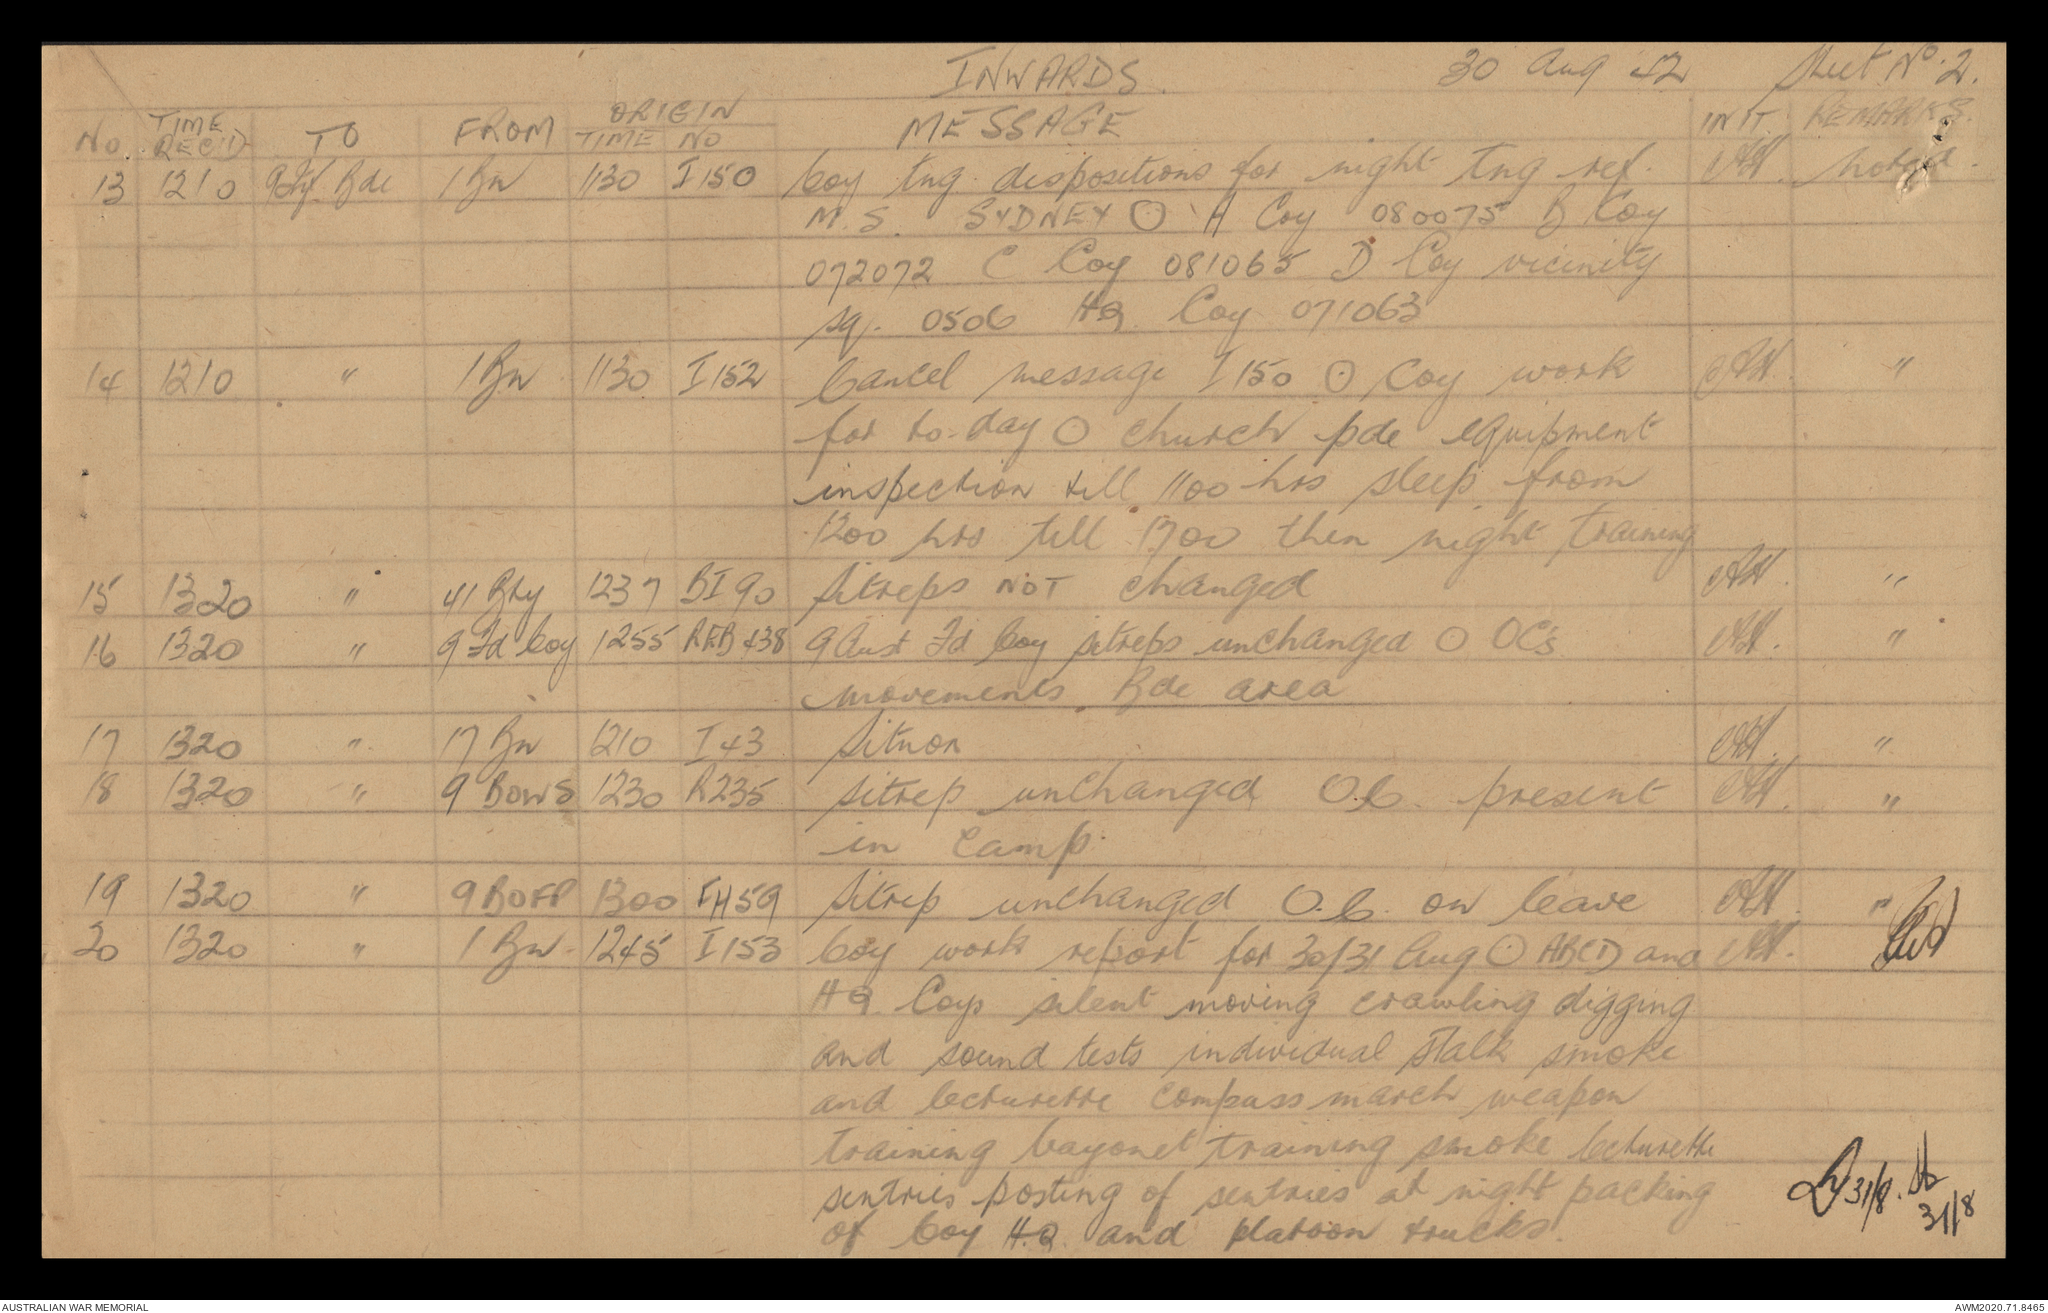 INWARDS 30 Aug 42 Sheet No. 2.
No. TIME REC'D TO FROM ORIGIN TIME NO MESSAGE INIT. REMARKS.
13 1210 9 Inf. Bde 1 Bn 1130 I150 Coy tng. dispositions for night tng ref. noted.
M.S. SYDNEY O A Coy 080075 B Coy
072072 C Coy 081065 D Coy vicinity
sq. 0506 HQ. Coy 071063
14 1210 " 1 Bn 1130 I152 Cancel message I150 O Coy work "
for to-day O church pde equipment
inspection till 1100 hrs sleep from
1200 hrs till 1700 then night training
15 1320 " 41 Bty 1237 BI90 Sitreps NOT changed "
16 1320 " 9 Fd Coy 1255 438 9 Aust Fd Coy sitreps unchanged O OC's "
movements Bde area
17 1320 " 17 Bn 1210 I43 Situon "
18 1320 " 9 BOWS 1230 R235 sitrep unchanged O.C. present "
in camp.
19 1320 " 9 BOFP 1300 FH59 Sitrep unchanged O.C. on leave "
20 1320 " 1 Bn 1245 I153 Coy work report for 30/31 Aug O ABCD and
HQ. Coys silent moving crawling digging
and sound tests individual stalk smoke
and lecturette compass march weapon
training bayonet training smoke lecturette
sentries posting of sentries at night packing
of Coy H.Q. and platoon trucks.
31/8.
31/8
AUSTRALIAN WAR MEMORIAL AWM2020.71.8465